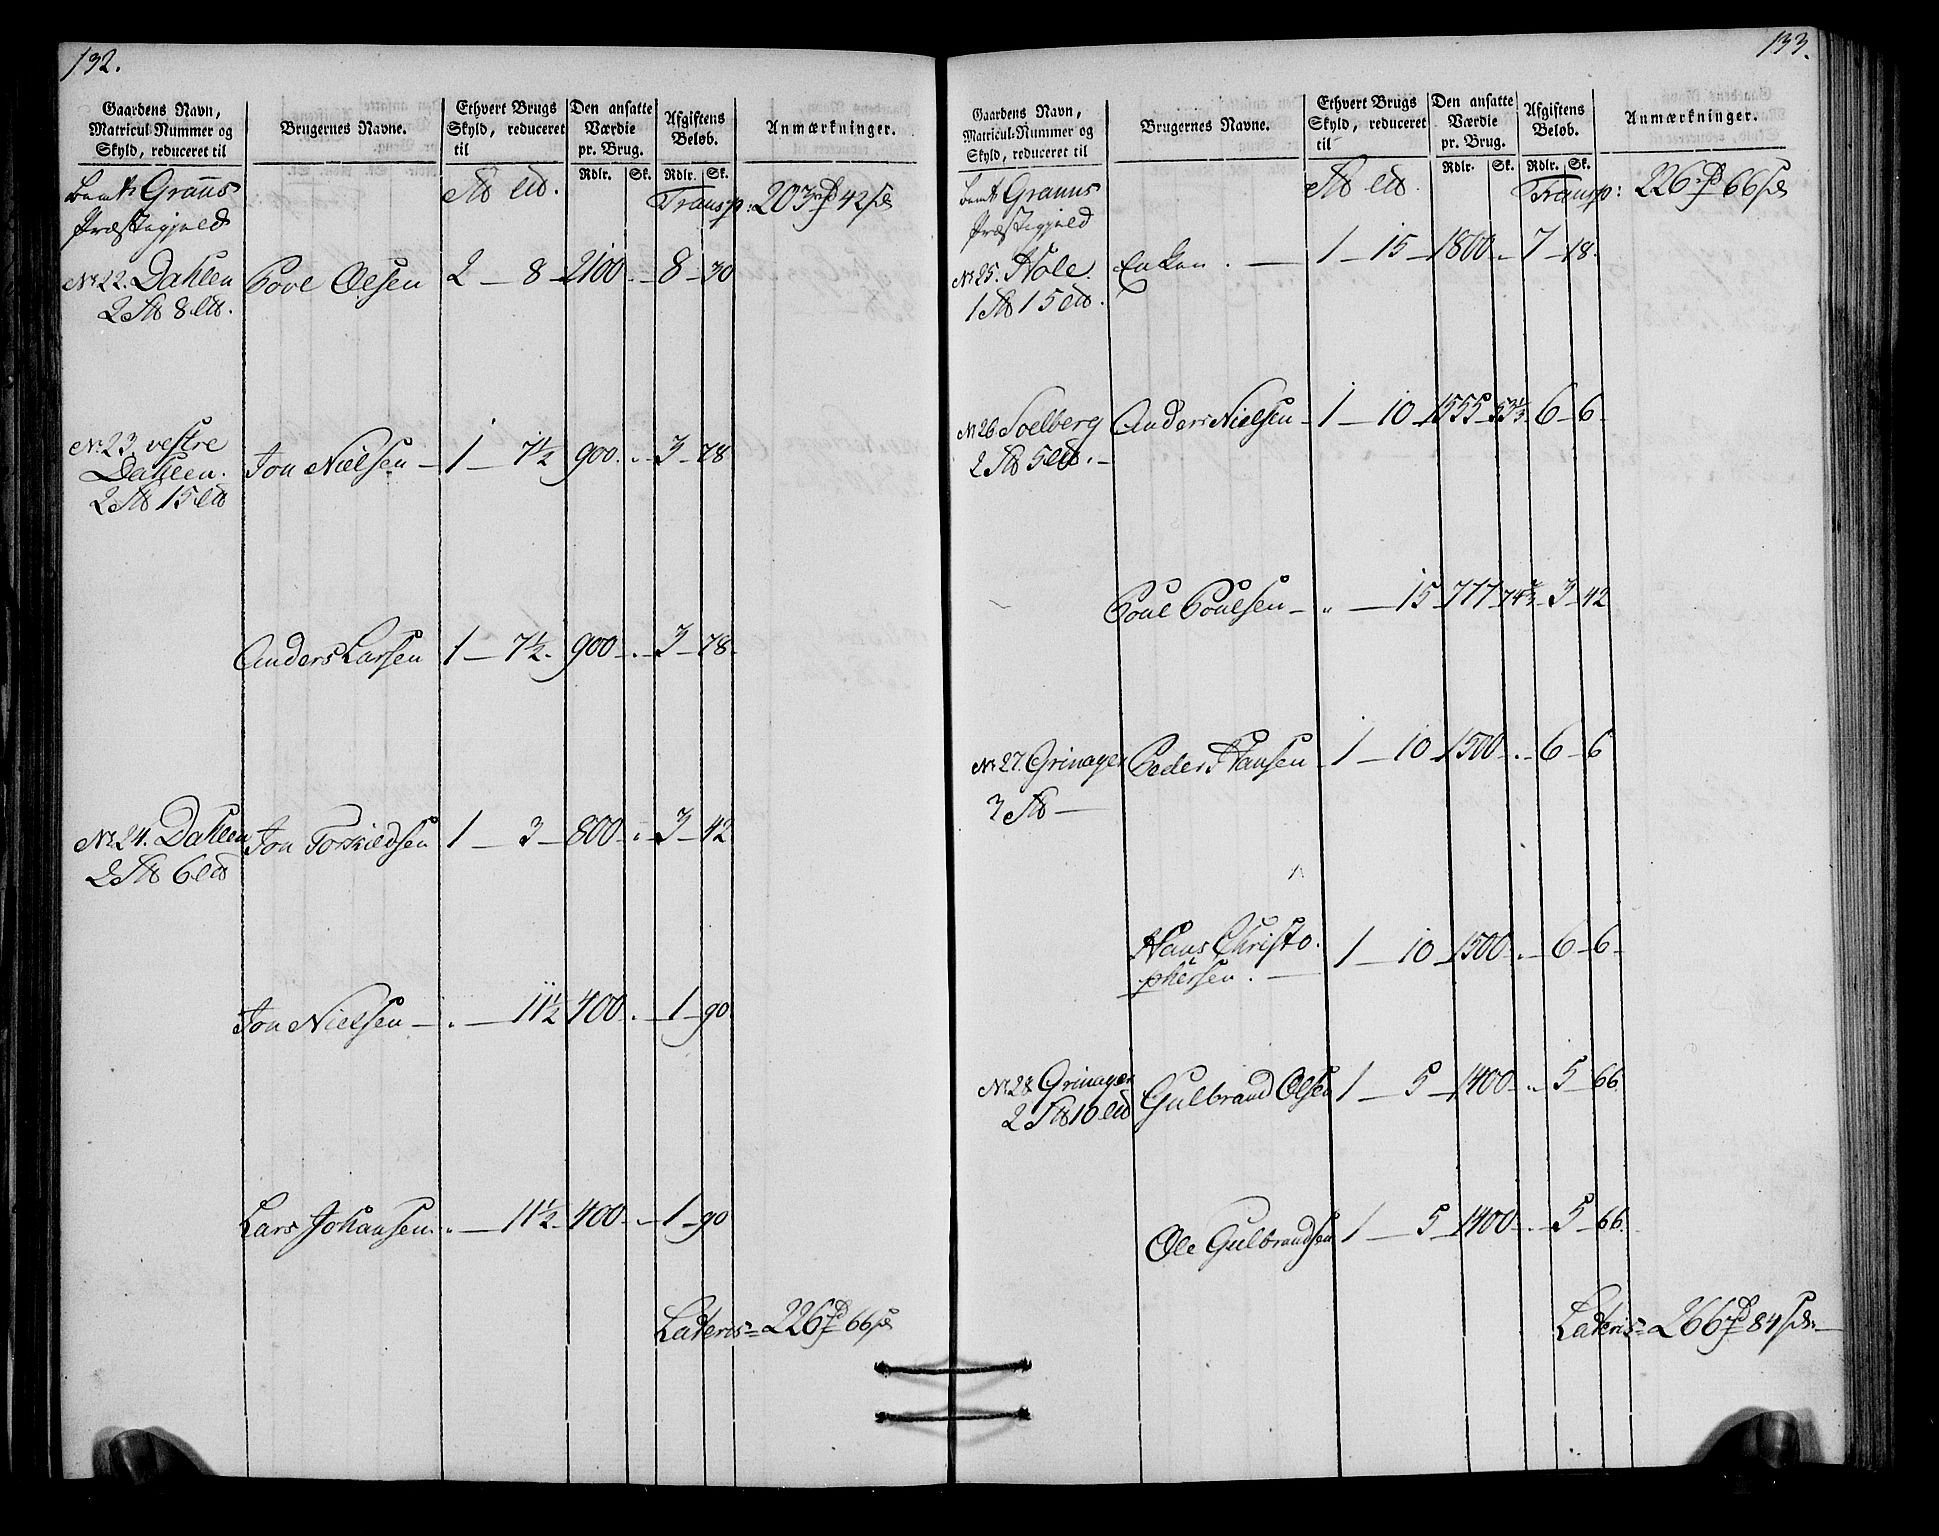 132.
Gaardens Navn,
Matricul-Nummer og
Skyld, reduceret til
Brugernes Navne.
Ethvert Brugs
Skyld, reduceret
til
Den ansatte
Værdie
pr. Brug.
Rdlr. Sk.
Afgiftens
Beløb.
Rdlr. Sk.
Anmærkninger.
Grans
Præstegjeld
Transp: 203 42
No 22. Dahlen Povel Olsen 2 — 8 — 2100 - 8 - 30
2 8
No 23. vestre
Dahlen. Jon Nielsen — 1 — 7½ 900 - 3 - 78
2 15
Anders Larsen 1 — 7½ 900 - 3 - 78
No 24. Dahlen Jon Torkildsen 1 — 3 — 800 - 3 - 42
2 6
Jon Nielsen — — 11½ 400 - 1 - 90
Lars Johansen — 11½ 400 - 1 - 90
Lateris = 226 66
133.
Gaardens Navn,
Matricul-Nummer og
Skyld, reduceret til
Brugernes Navne.
Ethvert Brugs
Skyld, reduceret
til
Den ansatte
Værdie
pr. Brug.
Rdlr. Sk.
Afgiftens
Beløb.
Rdlr. Sk.
Anmærkninger.
Granns
Præstegjeld
Transp: 226 66
No 25. Hole Enken — 1 — 15 — 1800 - 7 - 18
1 15
No 26 Soelberg Anders Nielsen — 1 — 10 — 1555 - 53⅓ 6 - 6
2 5
Poul Poulsen — — 15 - 777 - 74⅔ - 3 - 42
No 27. Grinager Peder Hansen — 1 — 10 — 1500 - 6 - 6
3
Hans Christo-
phersen. — 1 — 10 — 1500 - 6 - 6
No 28 Grinager Gulbrand Olsen 1 — 5 — 1400 - 5 - 66
2 10
Ole Gulbrandsen 1 — 5 — 1400 - 5 - 66
Lateris = 266 84